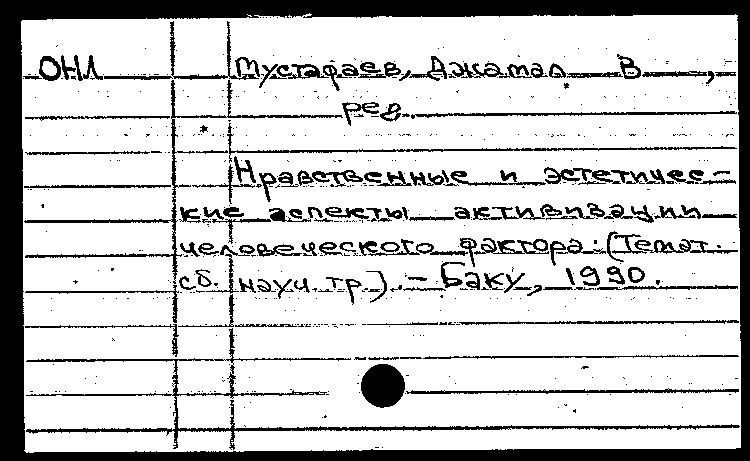 ОНЛ Мустафаев, Джамал В ,
ред.
Нравственные и эстетичес-
кие аспекты активизации
человеческого фактора: (Темат.
сб. науч. тр.). - Баку, 1990.